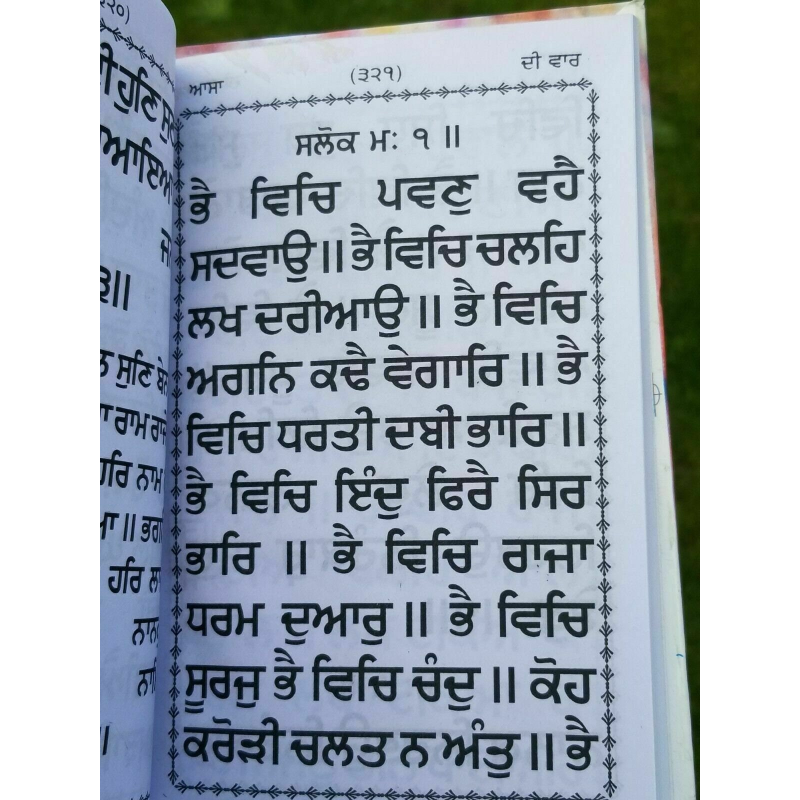 ਆਸਾ (੩੨੧) ਦੀ ਵਾਰ
ਸਲੋਕ ਮਃ ੧ ॥
ਭੈ ਵਿਚਿ ਪਵਣੁ ਵਹੈ
ਸਦਵਾਉ॥ ਭੈ ਵਿਚਿ ਚਲਹਿ
ਲਖ ਦਰੀਆਉ ॥ ਭੈ ਵਿਚਿ
ਅਗਨਿ ਕਢੈ ਵੇਗਾਰਿ ॥ ਭੈ
ਵਿਚਿ ਧਰਤੀ ਦਬੀ ਭਾਰਿ ॥
ਭੈ ਵਿਚਿ ਇੰਦੁ ਫਿਰੈ ਸਿਰ
ਭਾਰਿ ॥ ਭੈ ਵਿਚਿ ਰਾਜਾ
ਧਰਮ ਦੁਆਰੁ ॥ ਭੈ ਵਿਚਿ
ਸੂਰਜੁ ਭੈ ਵਿਚਿ ਚੰਦੁ ॥ ਕੋਹ
ਕਰੋੜੀ ਚਲਤ ਨ ਅੰਤੁ ॥ ਭੈ
ਹੁਣਿ
੩॥
ਸੁਣਿ
ਰਾਮ
ਨਾਮ
॥
ਹਰਿ